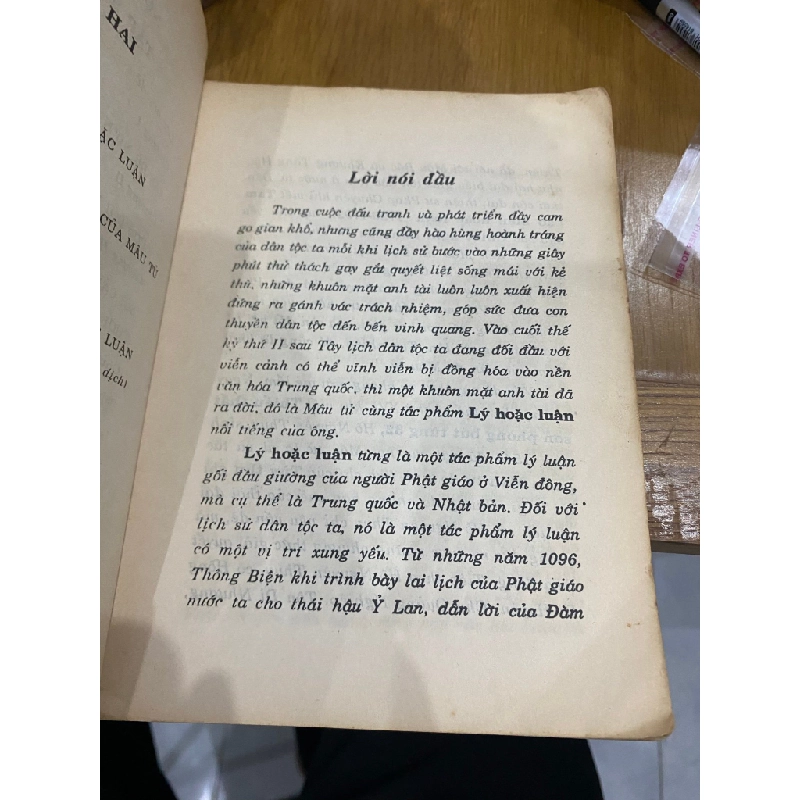 HAI
ẶC LUẬN
CỦA MÂU TỬ
LUẬN
dịch)
Lời nói đầu
Trong cuộc đấu tranh và phát triển đầy cam
go gian khổ, nhưng cũng đầy hào hùng hoành tráng
của dân tộc ta mỗi khi lịch sử bước vào những giây
phút thử thách gay gắt quyết liệt sống mái với kẻ
thù, những khuôn mặt anh tài luôn luôn xuất hiện
đứng ra gánh vác trách nhiệm, góp sức đưa con
thuyền dân tộc đến bến vinh quang. Vào cuối thế
kỷ thứ II sau Tây lịch dân tộc ta đang đối đầu với
viễn cảnh có thể vĩnh viễn bị đồng hóa vào nền
văn hóa Trung quốc, thì một khuôn mặt anh tài đã
ra đời, đó là Mâu tử cùng tác phẩm Lý hoặc luận
nổi tiếng của ông.
Lý hoặc luận từng là một tác phẩm lý luận
gối đầu giường của người Phật giáo ở Viễn đông,
mà cụ thể là Trung quốc và Nhật bản. Đối với
lịch sử dân tộc ta, nó là một tác phẩm lý luận
có một vị trí xung yếu. Từ những năm 1096,
Thông Biện khi trình bày lai lịch của Phật giáo
nước ta cho thái hậu Ỷ Lan, dẫn lời của Đàm